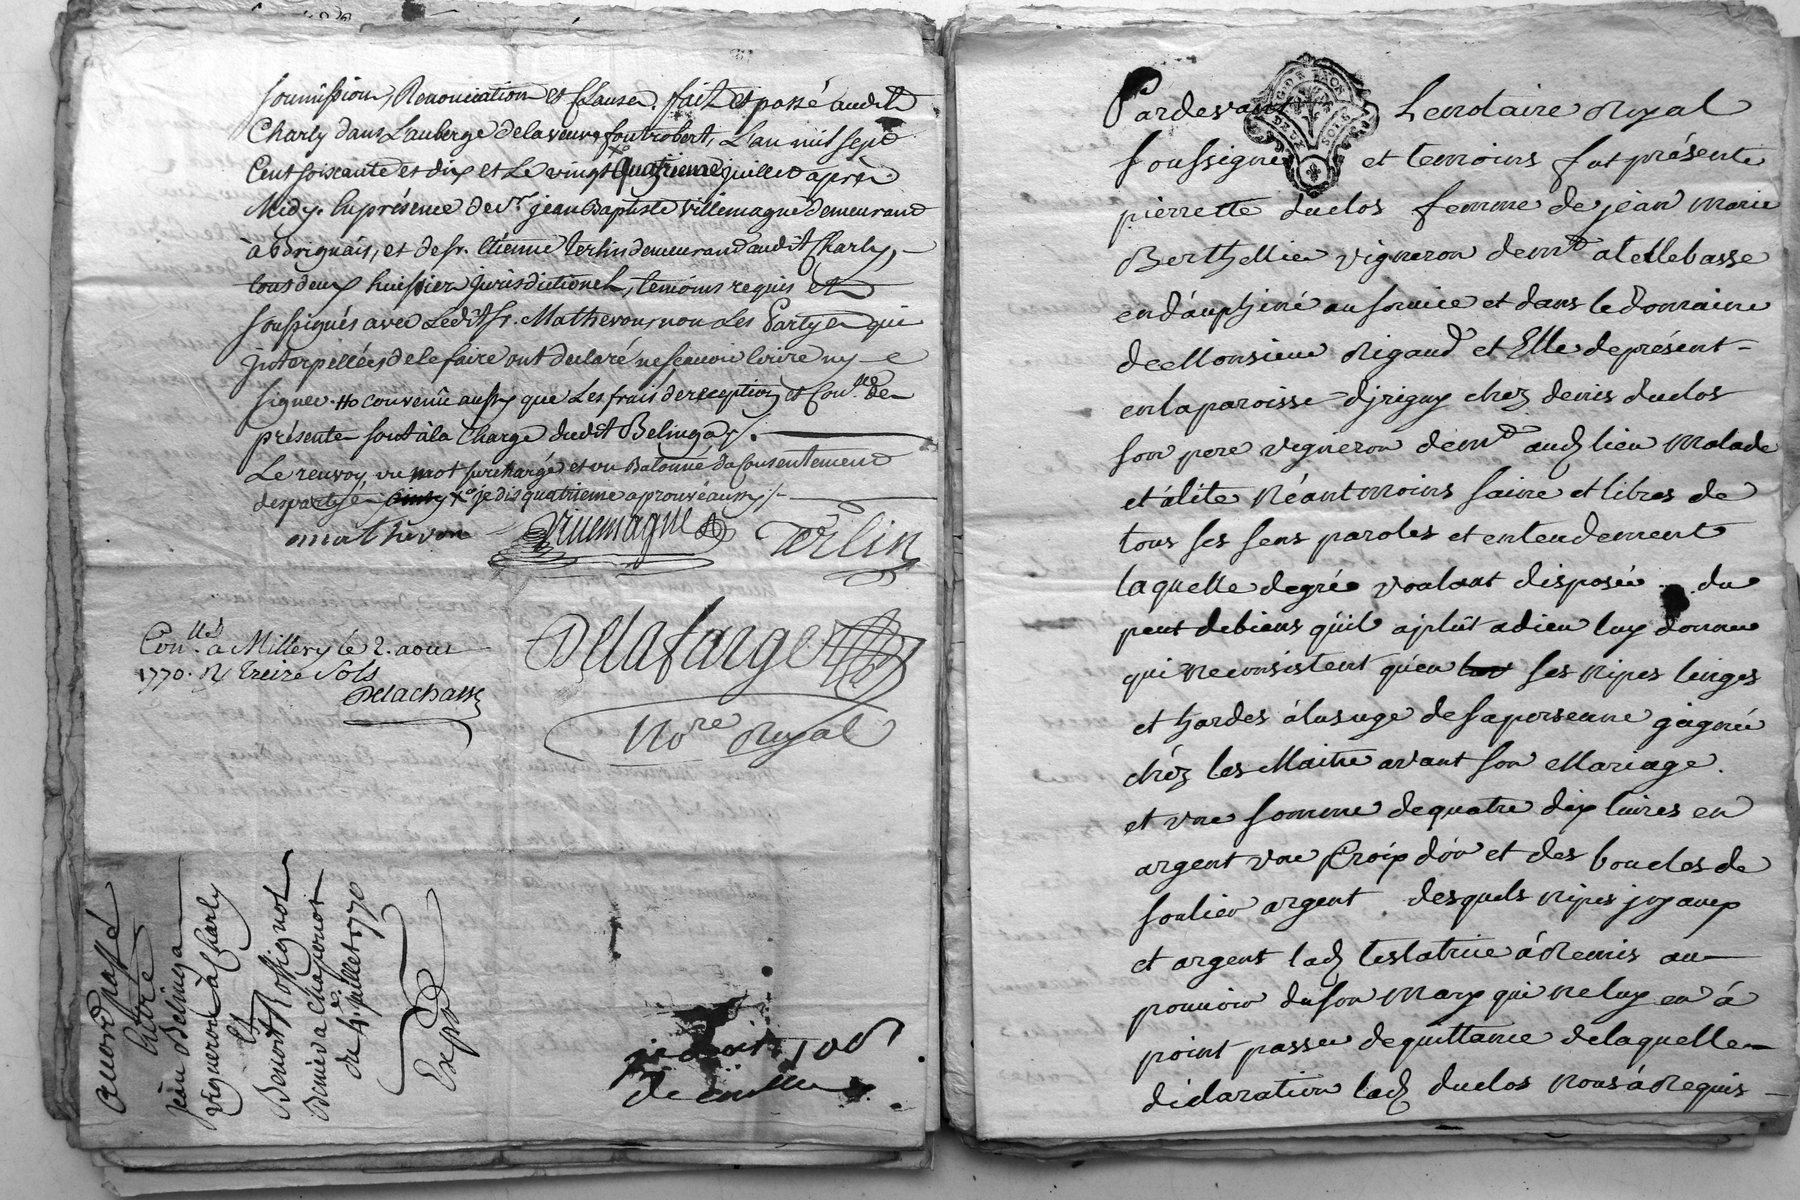 soumission, Renonciation et Clause. fait et passé audit
Charly dans L'auberge de la veuve foutrobert, L'an mil sept
Cent soixante et dix et Le vingt quatrieme juillet après
Midy. En présence de Sr. jean Baptiste Villemagne demeurant
à vorignais, et de sr. Etienne Terlin demeurand audit Charly,
tous deux huissier jurisdictionel, temoins requis et
soussignés avec Ledit sr. Mathevon, non Les Partyes qui
interpellées de le faire ont declaré ne scavoir Ecrire ny
signer. convenû aussy que Les frais de reception et Con.lle de
présente sont à la Charge dudit Belingas.
Le renvoy, un mot surchargé et un Batonné du Consentement
des partyes je dis quatrieme aprouvé aussy
mathevon Villemagne Terlin
Delafarge
Nore Royal
Con.llé à Millery le 2. aout
1770. R Treize Sols
Delachasse
acord passé
Entre
jean Belingas
vigneron à Charly
Et
Benoit Rossignol
du 24. juillet 1770
Expé
100
Pardevant Le notaire Royal
soussigné et temoins fut présente
pierrette duclos femme de jean marie
Berthellier vigneron demt a tellebasse
en dauphiné au service et dans le domaine
de Monsieur Rigaud et Elle de présent
en la paroisse djrigny chez denis duclos
son pere vigneron demt audt lieu Malade
et alite Néantmoins saine et libres de
tous ses sens paroles et entendement
laquelle de gré voulant disposée du
peut de biens quil a plût a dieu luy donner
qui ne consistent qu'en ses Nipes linges
et hardes à lusage de sa personne gagné
chéz les Maitre avant son Mariage.
et une somme de quatre dix livres en
argent une Croix d'or et des boucles de
soulier argent desquels Nipes joyaux
et argent ladt testatrice à Remis au
pouvoir du son Mary qui ne luy en à
point passer de quittance de laquelle
déclaration ladt duclos nous à Requis